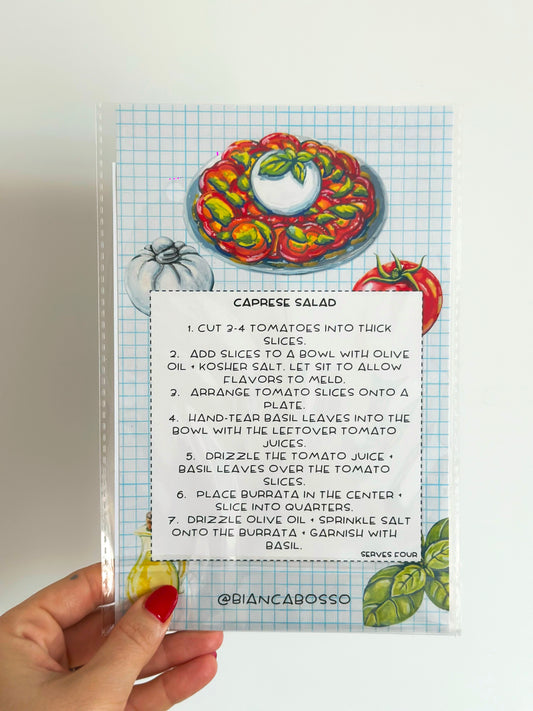 CAPRESE SALAD
1. CUT 3-4 TOMATOES INTO THICK
SLICES.
2. ADD SLICES TO A BOWL WITH OLIVE
OIL + KOSHER SALT. LET SIT TO ALLOW
FLAVORS TO MELD.
3. ARRANGE TOMATO SLICES ONTO A
PLATE.
4. HAND-TEAR BASIL LEAVES INTO THE
BOWL WITH THE LEFTOVER TOMATO
JUICES.
5. DRIZZLE THE TOMATO JUICE +
BASIL LEAVES OVER THE TOMATO
SLICES.
6. PLACE BURRATA IN THE CENTER +
SLICE INTO QUARTERS.
7. DRIZZLE OLIVE OIL + SPRINKLE SALT
ONTO THE BURRATA + GARNISH WITH
BASIL.
SERVES FOUR
@BIANCABOSSO